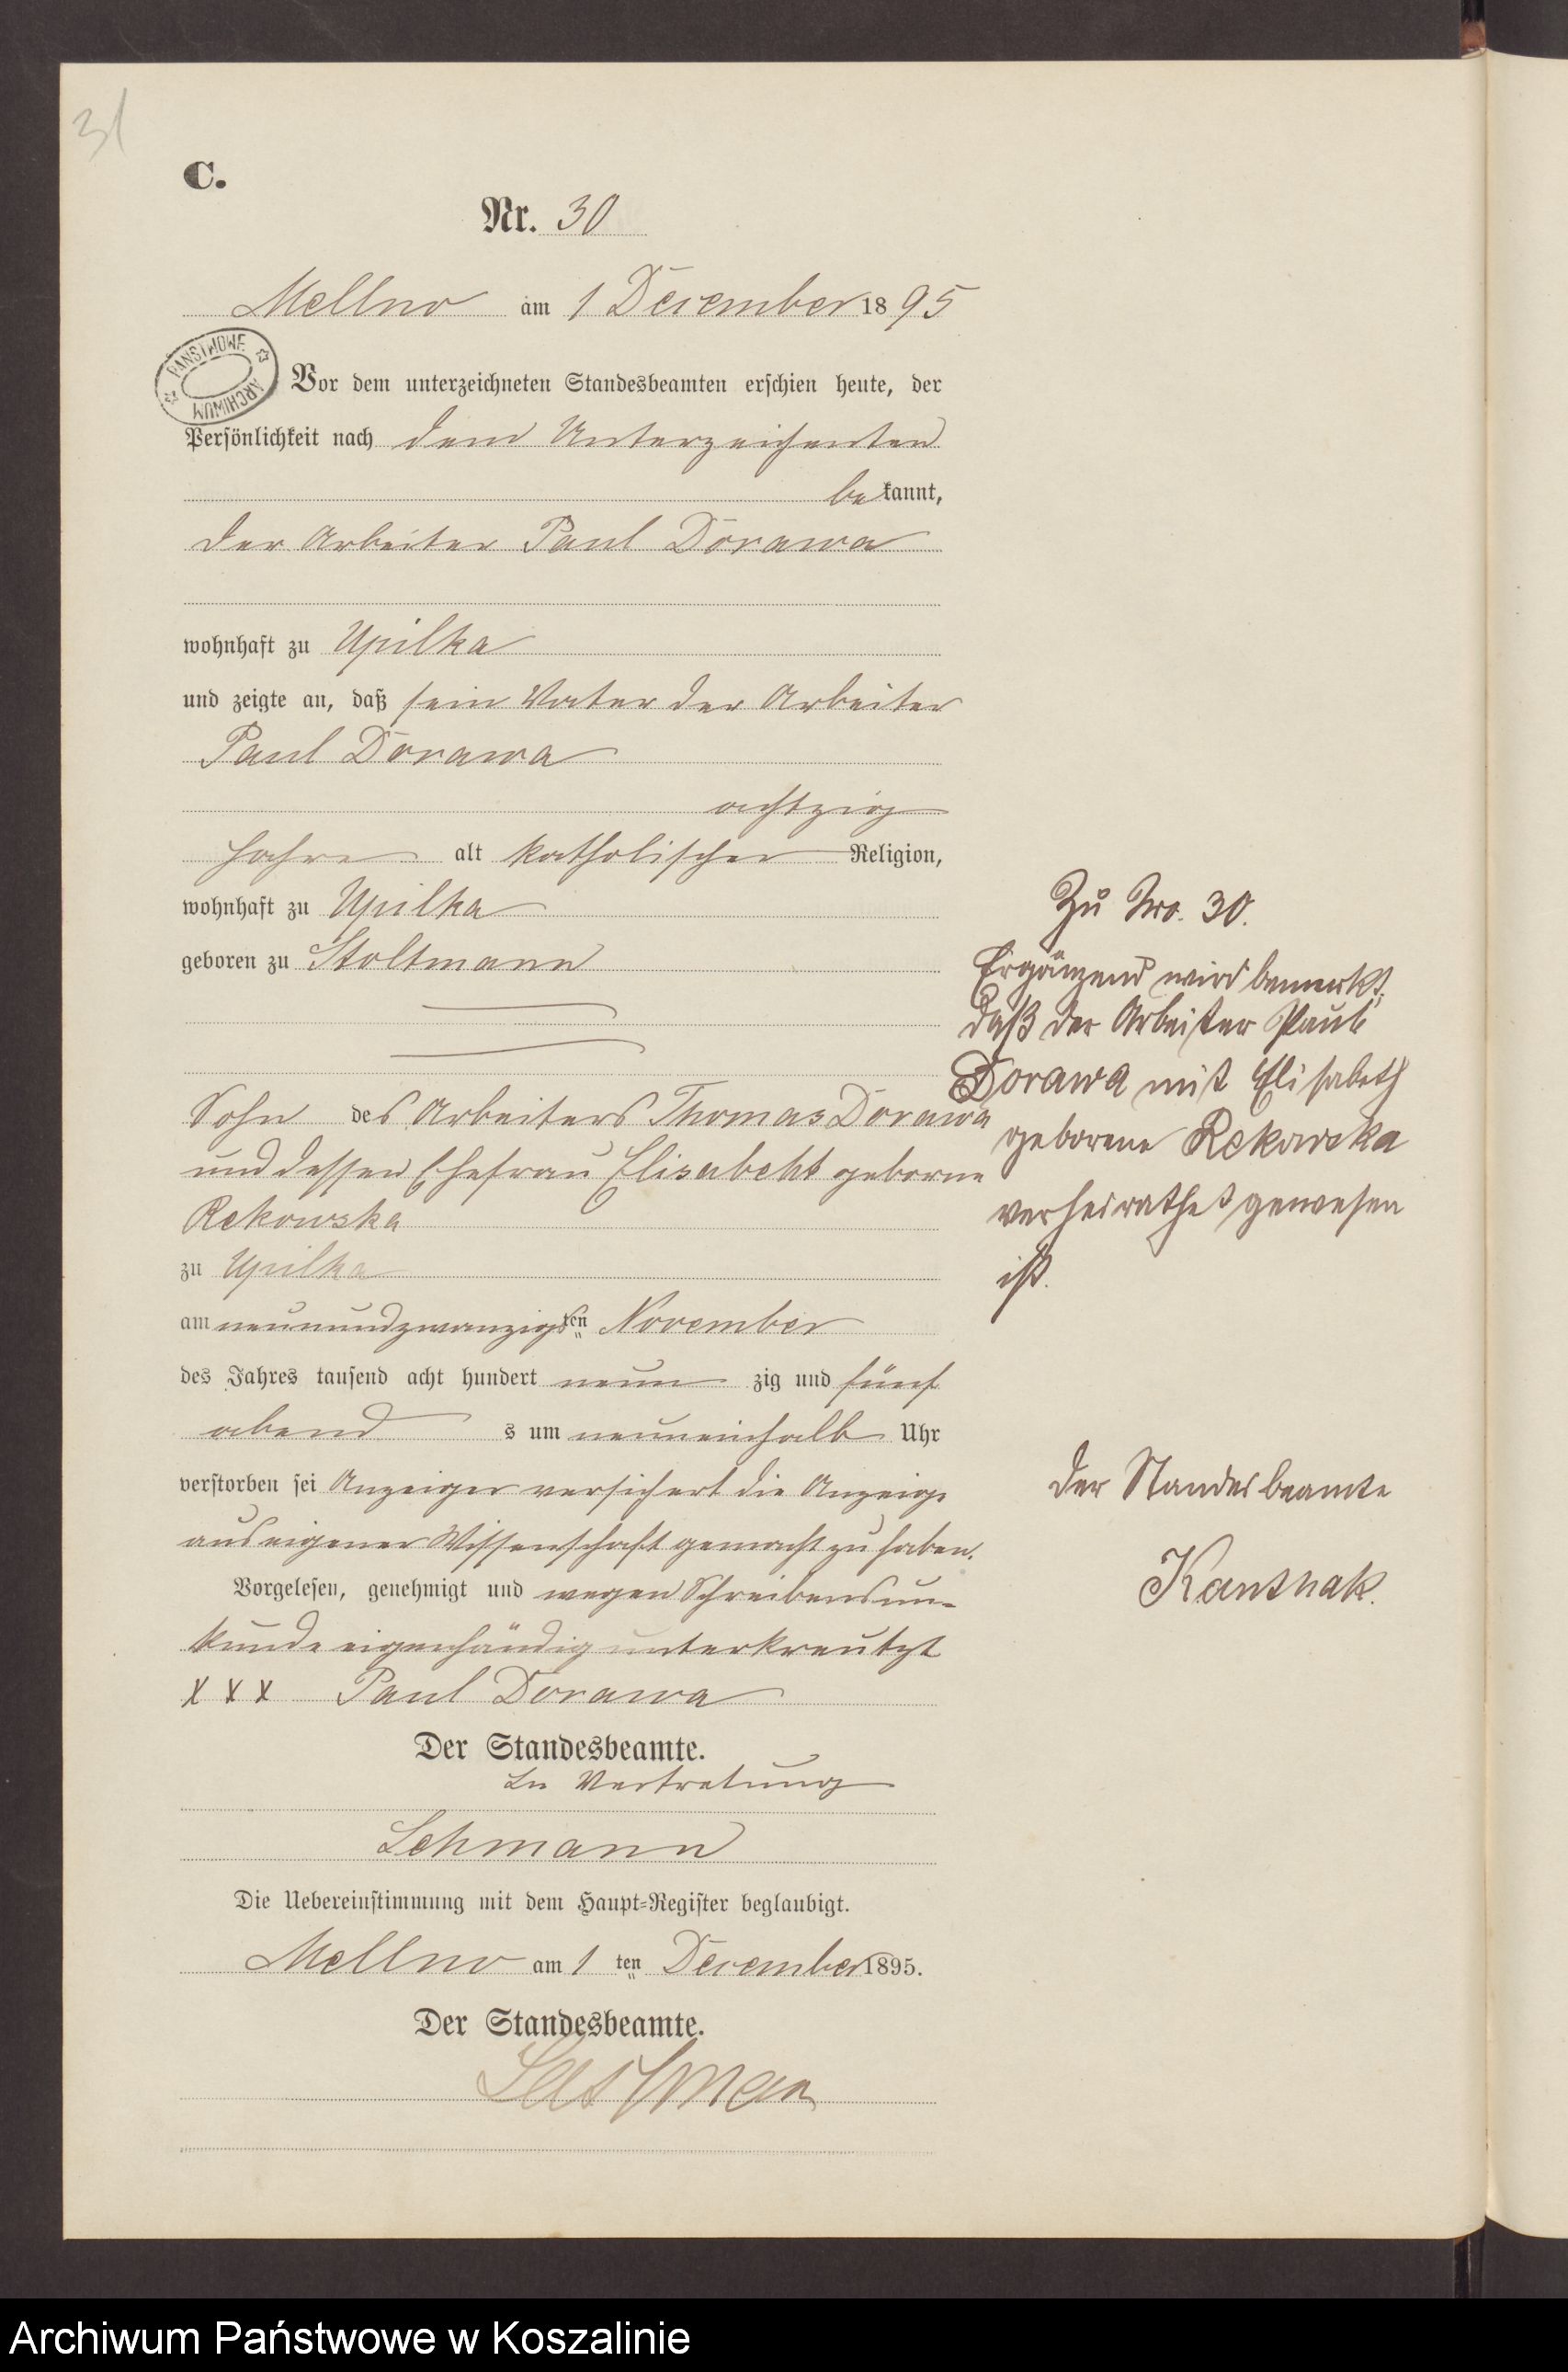 31
C.
Nr. 30
Mellno am 1 December 1895
PAŃSTWOWE ARCHIWUM
Vor dem unterzeichneten Standesbeamten erschien heute, der
Persönlichkeit nach dem Unterzeichenten
be kannt,
der Arbeiter Paul Dorawa
wohnhaft zu Upilka
und zeigte an, daß sein Vater der Arbeiter
Paul Dorawa
achtzig
Jahre alt katholischer Religion,
wohnhaft zu Upilka
geboren zu Stoltmann
Sohn des Arbeiters Thomas Dorawa
und dessen Ehefrau Elisabeht geborne
Rekowska
zu Upilka
am neunundzwanzigsten November
des Jahres tausend acht hundert neun zig und fünf
abend s um neuneinhalb Uhr
verstorben sei Anzeiger versichert die Anzeige
aus eigener Wissenschaft gemacht zu haben.
Vorgelesen, genehmigt und wegen Schreibensun-
kunde eigenhändig unterkreutzt
XXX Paul Dorawa
Der Standesbeamte.
In Vertretung
Lehmann
Die Uebereinstimmung mit dem Haupt-Register beglaubigt.
Mellno am 1 ten December 1895.
Der Standesbeamte.
Zu Nro. 30.
Ergänzend wird bemerkt,
daß der Arbeiter Paul
Dorawa mit Elisabeth
geborene Rekowska
verheirathet gewesen
ist.
Der Standesbeamte
Archiwum Państwowe w Koszalinie